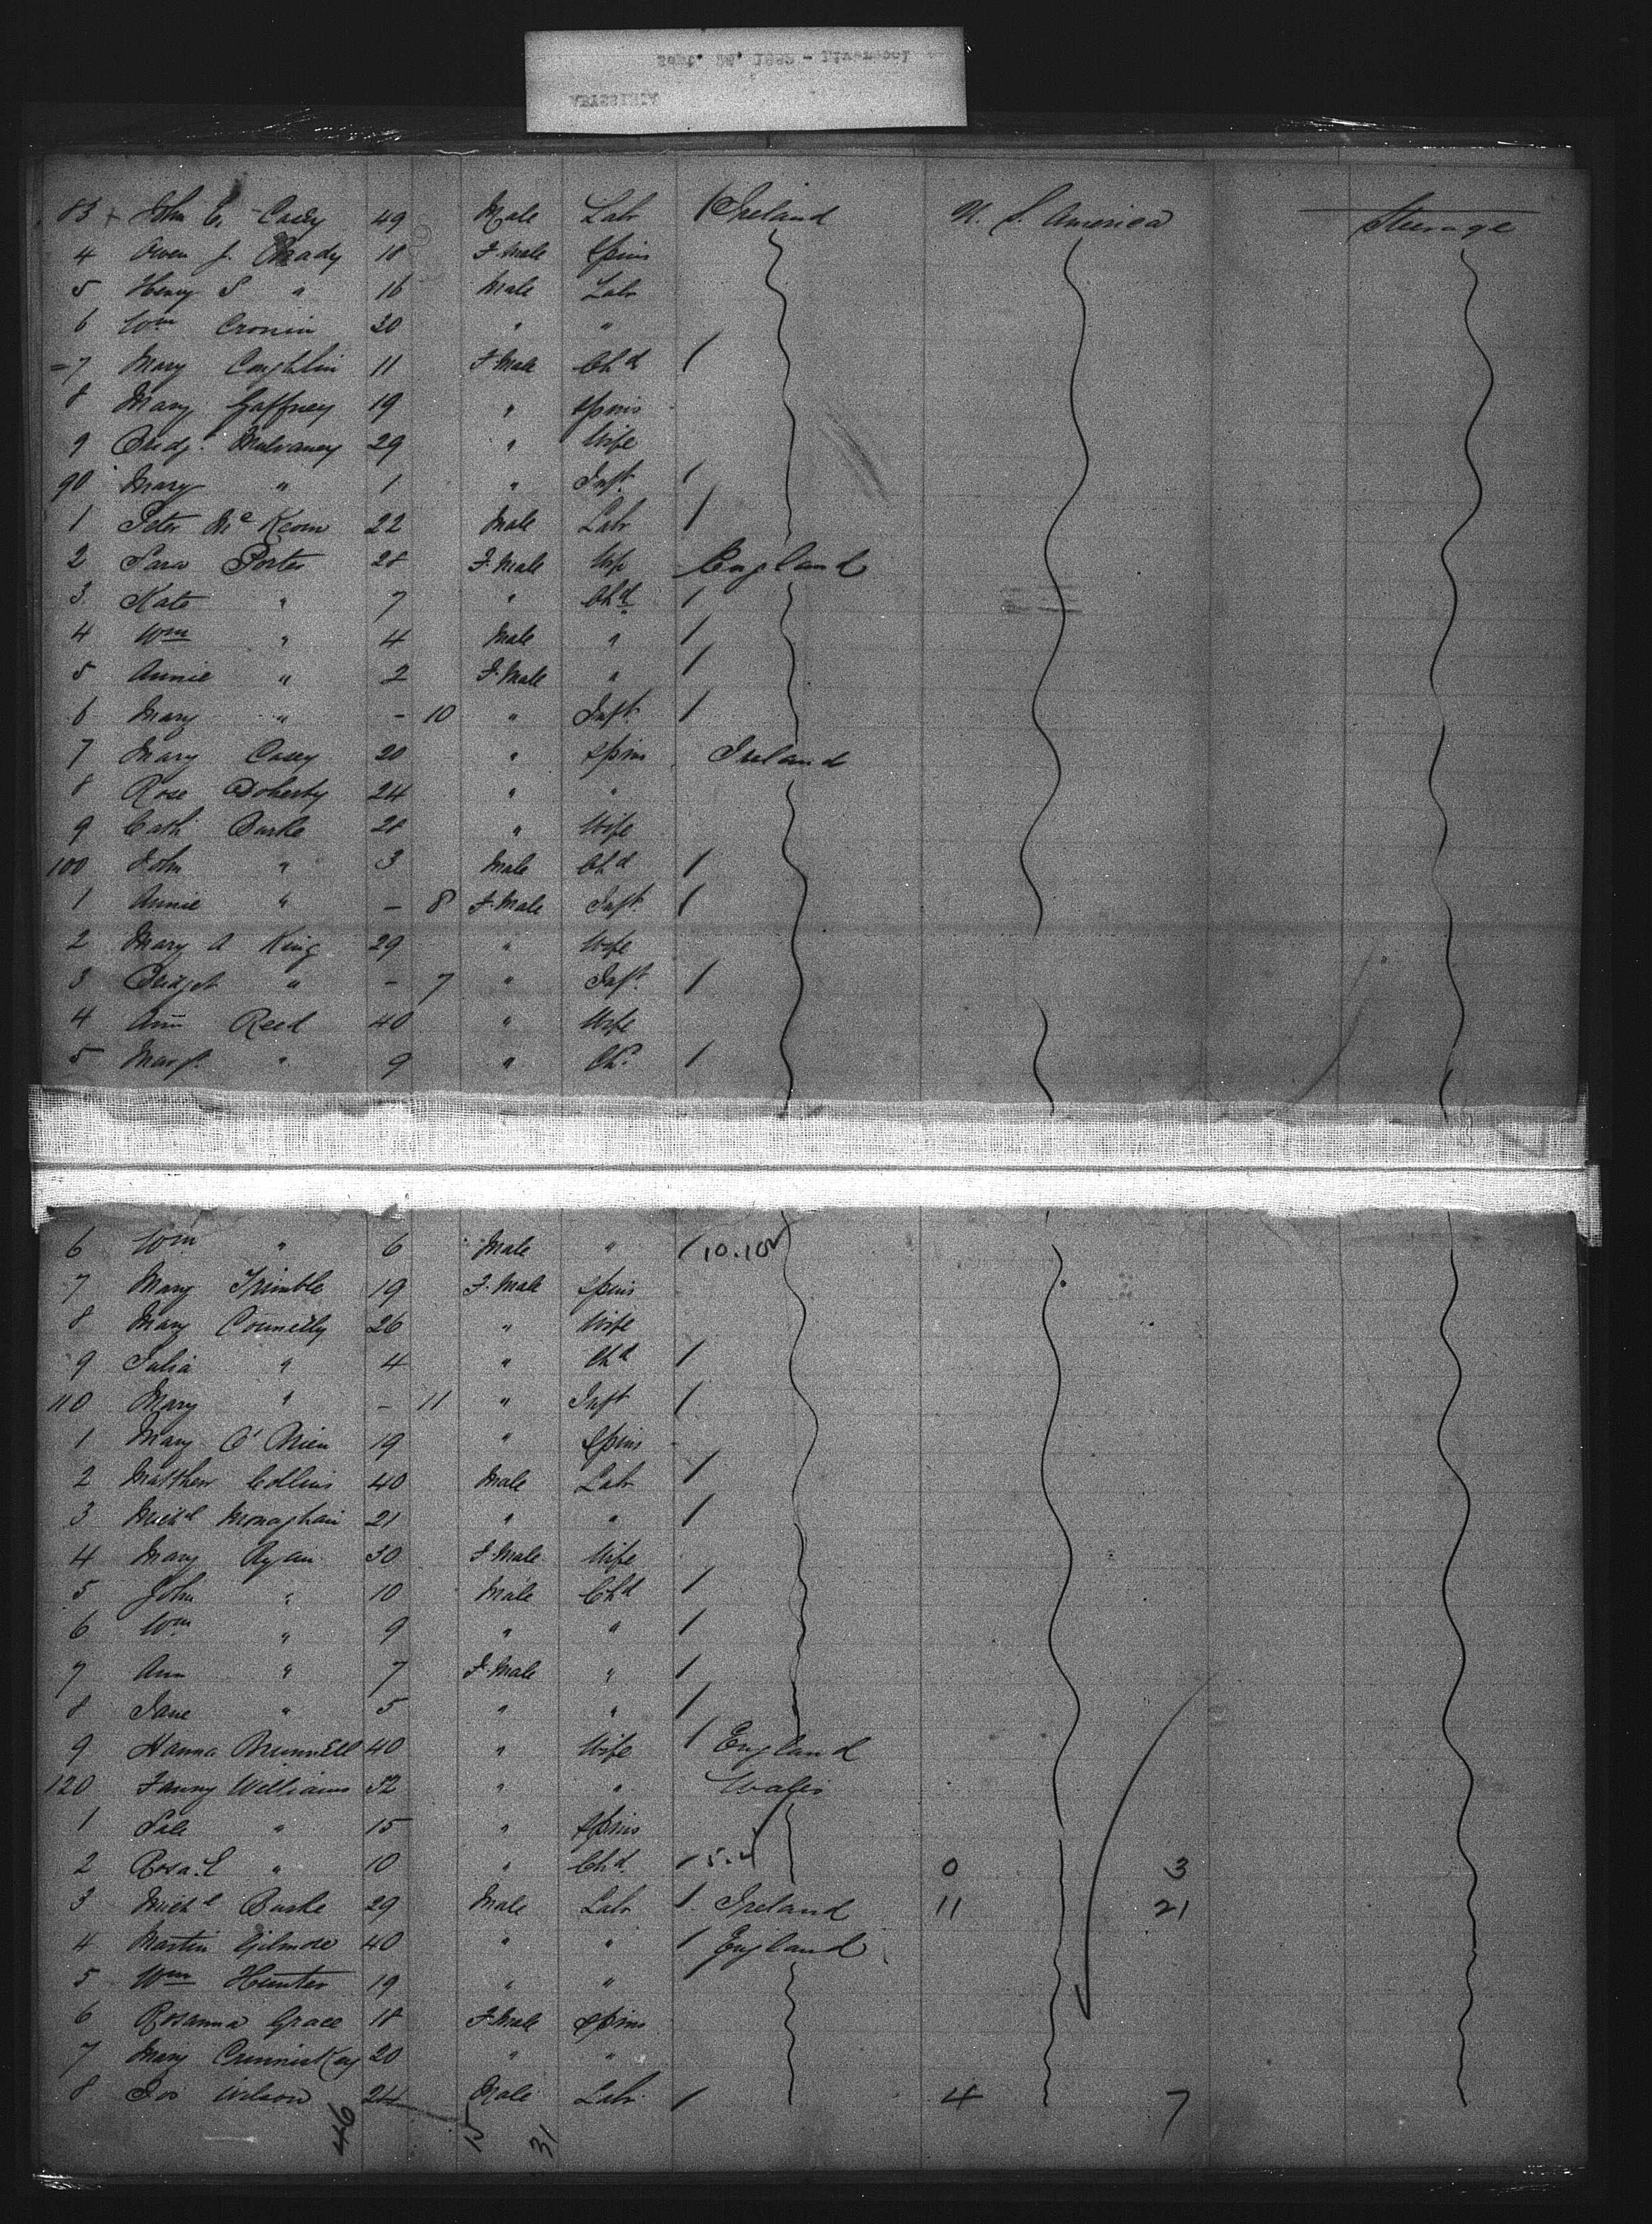 83 + John E. Casey 49 Male Labr / Ireland U. S. America Steerage
4 Owen J. Obrady 18 F. Male Spins
5 Henry S " 16 Male Labr
6 Wm Cronin 30 " "
7 Mary Coughlin 11 F. Male Chd /
8 Mary Gaffney 19 " Spins
9 Bridgt Mulvaney 29 " Wife
90 Mary " 1 " Inft /
1 Peter Mc Keown 22 Male Labr /
2 Sara Porter 28 F. Male Wife England
3 Kate " 7 " Chd /
4 Wm " 4 Male " /
5 Annie " 2 F. Male " /
6 Mary " - 10 " Inft /
7 Mary Casey 20 " Spins Ireland
8 Rose Doherty 24 " "
9 Cath Burke 28 " Wife
100 John " 3 Male Chd /
1 Annie " - 8 F. Male Inft /
2 Mary A King 29 " Wife
3 Bridget " - 7 " Inft /
4 Ann Reed 40 " Wife
5 Margt " 9 " Chd /
6 Wm " 6 Male " / 10.10
7 Mary Trimble 19 F. Male Spins
8 Mary Connelly 26 " Wife
9 Julia " 4 " Chd /
110 Mary " - 11 " Inft /
1 Mary O'Brien 19 " Spins
2 Matthew Collins 40 Male Labr /
3 Michl Monaghan 21 " " /
4 Mary Ryan 30 F. Male Wife
5 John " 10 Male Chd /
6 Wm " 9 " " /
7 Ann " 7 F. Male " /
8 Jane " 5 " " /
9 Hanna Brunnell 40 " Wife / England
120 Fanny Williams 52 " " Wales
1 " 15 " Spins
2 Rosa L " 10 " Chd / 0 3
3 Michl Burke 29 Male Labr / Ireland 11 21
4 Martin Gilmore 40 " " / England
5 Wm Hunter 19 " "
6 Rosanna Grace 18 F. Male Spins
7 Mary Cunniskey 20 " "
8 Jos Wilson 24 Male Labr / 4 7
46 15 31